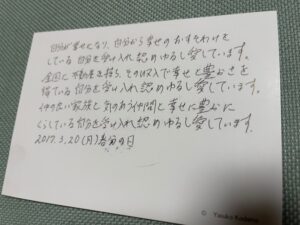 自分が幸せになり、自分から幸せのおすそわけを
している自分を受け入れ認めゆるし愛しています。
全国に不動産を持ち、その収入で幸せと豊かさを
得ている自分を受け入れ認めゆるし愛しています。
仲の良い家族と気のあう仲間と幸せに豊かに
くらしている自分を受け入れ認めゆるし愛しています。
2017.3.20(月)春分の日
© Yasuko Kodama